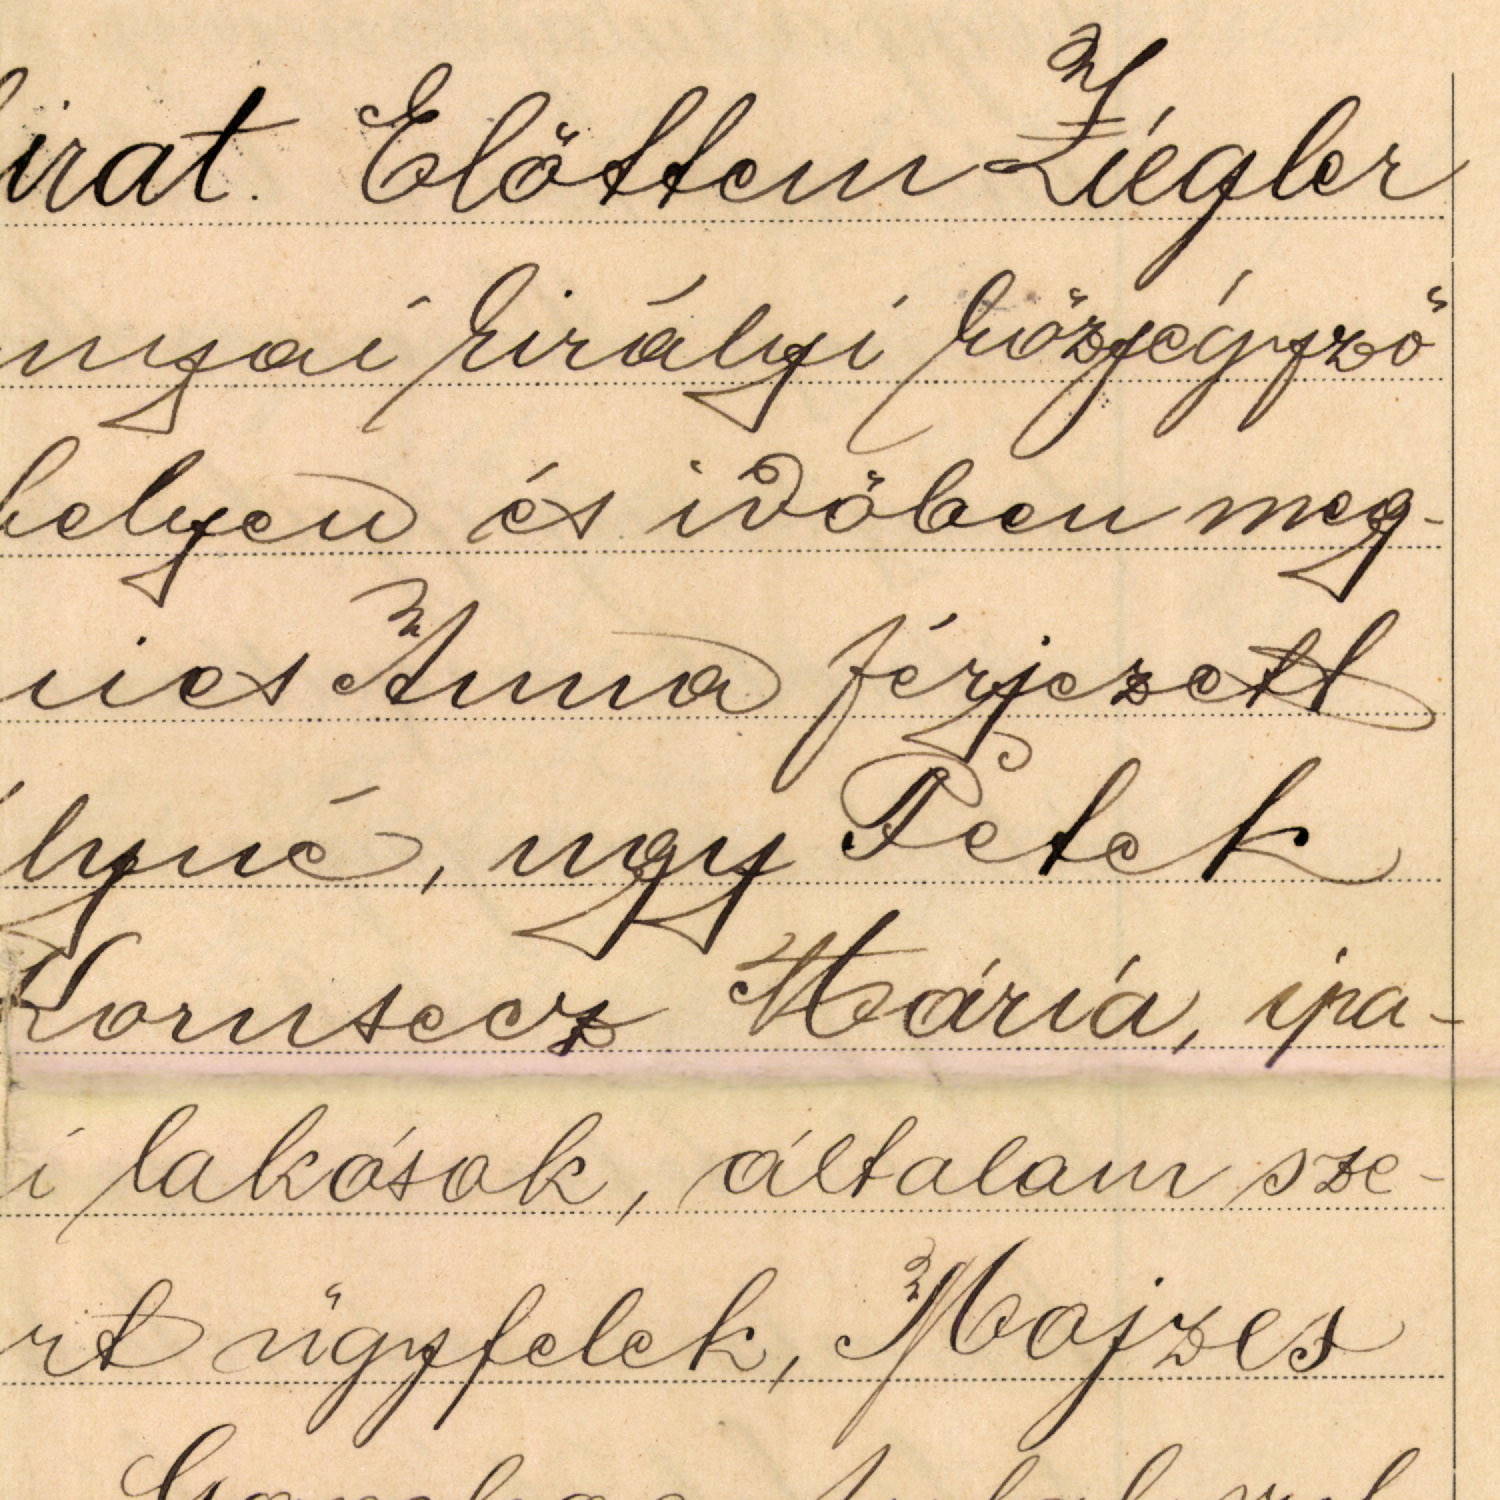 irat. Előttem Ziegler
nyai királyi közjegyző
helyen és időben meg-
vics Anna férjezett
lyné, ugy Petek
Kornsecz Mária, ipa-
i lakósok, általam sze-
rt ügyfelek, Mojzes